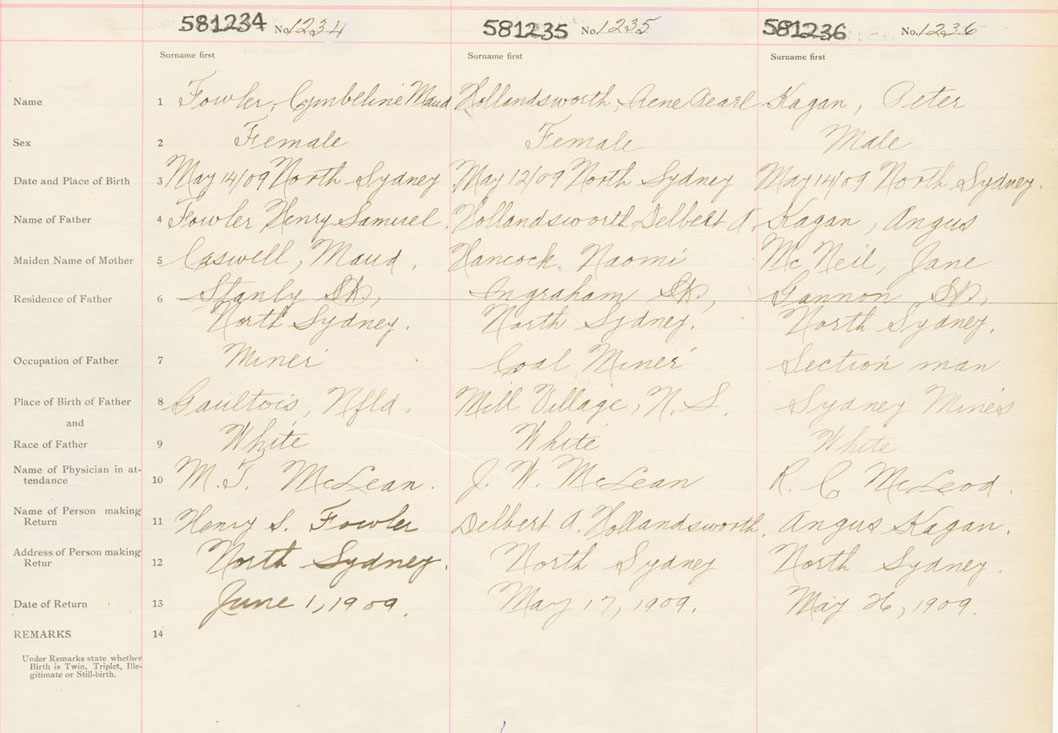 581234 No. 1234 581235 No. 1235 581236 No. 1236
Surname first Surname first Surname first
Name 1 Fowler, Cymbeline Maud Hollandsworth, Irene Pearl Kagan, Peter
Sex 2 Female Female Male
Date and Place of Birth 3 May 14/09 North Sydney May 12/09 North Sydney May 14/09 North Sydney.
Name of Father 4 Fowler Henry Samuel. Hollandsworth Delbert A, Kagan, Angus
Maiden Name of Mother 5 Caswell, Maud. Hancock, Naomi McNeil, Jane
Residence of Father 6 Stanly St, Ingraham St, Gannon St,
North Sydney. North Sydney. North Sydney.
Occupation of Father 7 Miner Coal Miner Section man
Place of Birth of Father 8 Gaultois, Nfld. Mill Village, N.S. Sydney Mines
and
Race of Father 9 White White White
Name of Physician in at-
tendance 10 M. T. McLean. J. W. McLean R. C McLeod.
Name of Person making
Return 11 Henry S. Fowler Delbert A. Hollandsworth. Angus Kagan.
Address of Person making
Retur 12 North Sydney. North Sydney North Sydney.
Date of Return 13 June 1, 1909. May 17, 1909. May 26, 1909.
REMARKS 14
Under Remarks state whether
Birth is Twin, Triplet, Ille-
gitimate or Still-birth.